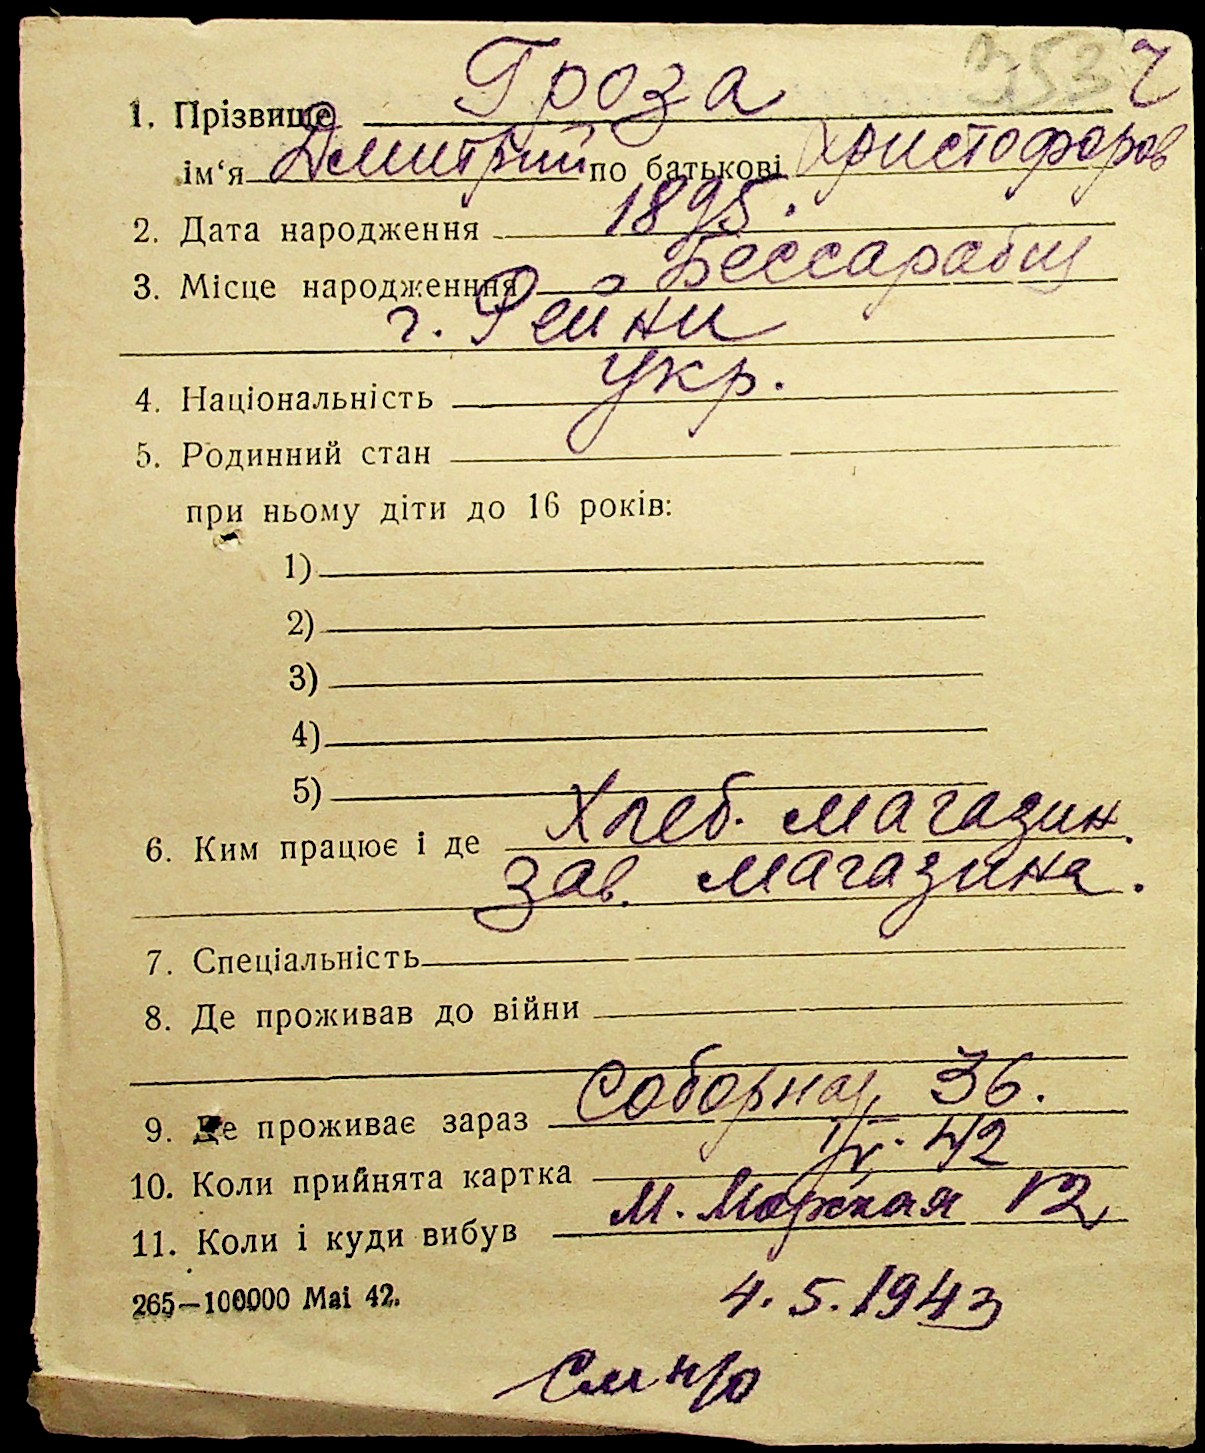 353 ч
1. Прізвище Гроза
ім‘я Дмитрий по батькові Христофоров
2. Дата народження 1895.
3. Місце народженння Бессарабия
г. Рейни
4. Національність укр.
5. Родинний стан
при ньому діти до 16 років:
1)
2)
3)
4)
5)
6. Ким працює і де Хлеб. магазин.
зав. магазина.
7. Спеціальність
8. Де проживав до війни
9. Де проживає зараз Соборная, 36.
10. Коли прийнята картка 42
11. Коли і куди вибув М. Морская 12
265—100000 Mai 42.
4. 5. 1943